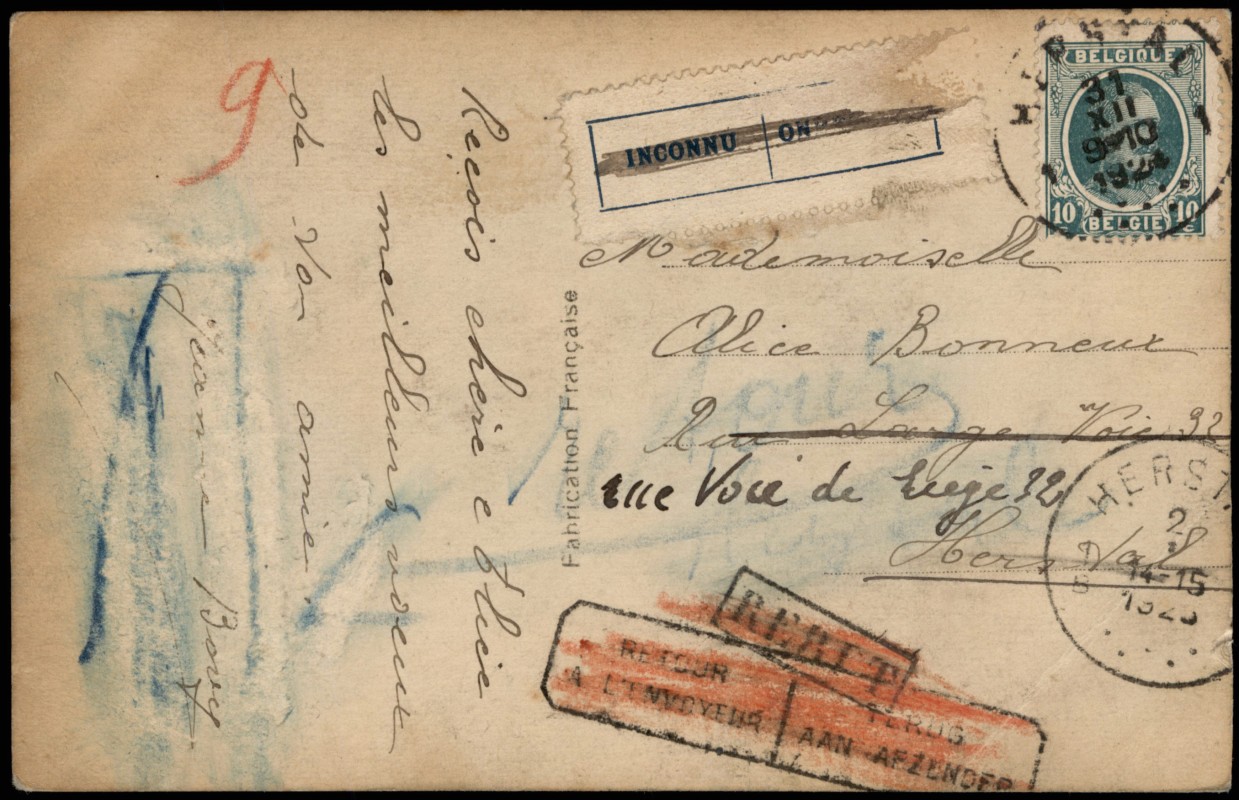 9
Reçois chère Alice
les meilleurs voeux
de ta amie
Jeanne Bovy
Fabrication Française
INCONNU
HERSTAL
1 1
31
XII
9-10
1924
BELGIQUE
10c 10c
BELGIË
Mademoiselle
Alice Bonneux
Rue Large Voie 32
rue Voie de Liège 32
Herstal
HERST
2
I
14-15
1925
B
REBUT
RETOUR
A L'ENVOYEUR
TERUG
AAN AFZENDER